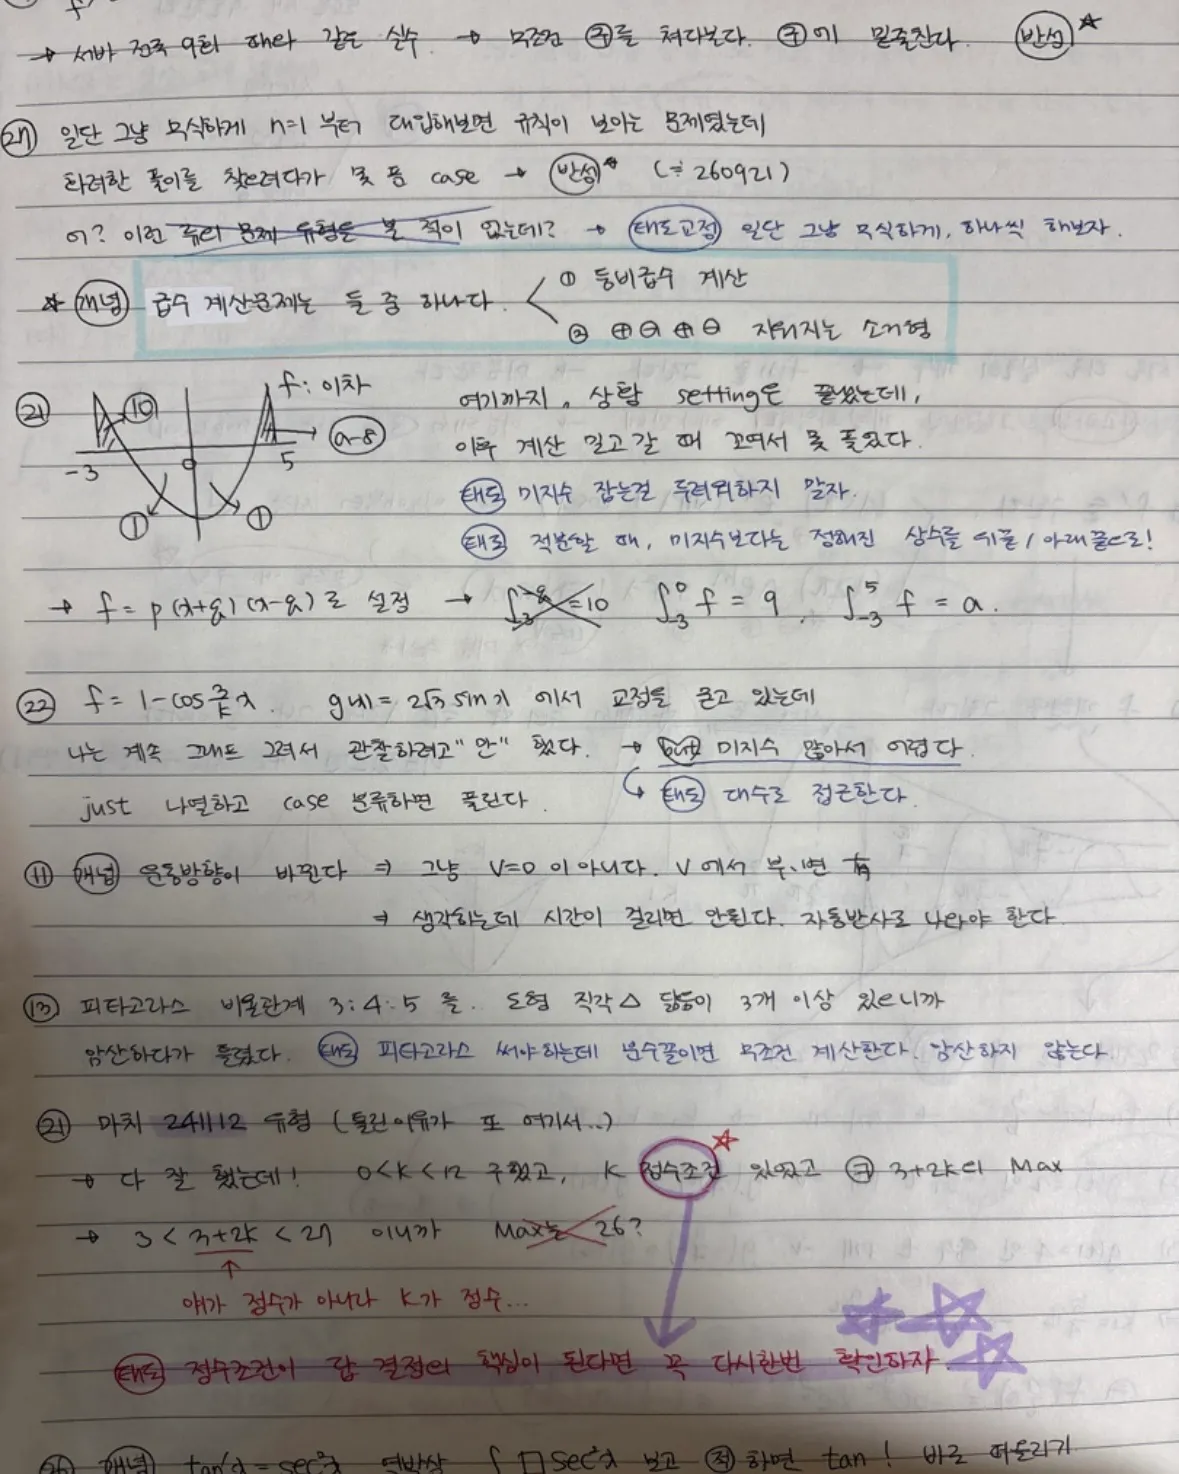 → 서바 전국 9회 해라 같은 실수 → 무조건 ㉾를 쳐다본다. ㉾에 밑줄친다. 반성☆
27 일단 그냥 무식하게 n=1 부터 대입해보면 규칙이 보이는 문제였는데
화려한 풀이를 찾으려다가 못 푼 case → 반성☆ (≒ 260921)
어? 이런 류의 문제 유형을 본 적이 없는데? → 태도교정 일단 그냥 무식하게, 하나씩 해보자.
☆ 개념 급수 계산문제는 둘 중 하나다. ① 등비급수 계산
② ⊕⊖⊕⊖ 지워지는 소거형
21 10 f: 이차 a-8 -3 0 5 ① ①
여기까지, 상황 setting은 끝냈는데,
이후 계산 밀고갈 때 꼬여서 못 풀었다.
태도 미지수 잡는걸 두려워하지 말자.
태도 적분할 때, 미지수보다는 정해진 상수를 위끝/아래끝으로!
→ f = p(x+q)(x-q)로 설정 → ∫₋₃^-q = 10 ∫₋₃⁰ f = 9, ∫₋₃⁵ f = a.
22 f = 1-cos x. g(x) = 2√3 sin x 에서 교점을 묻고 있는데
나는 계속 그래프 그려서 관찰하려고 "만" 했다. → but 미지수 많아서 어렵다.
just 나열하고 case 분류하면 풀린다. 태도 대수로 접근한다.
11 개념 운동방향이 바뀐다 ⇒ 그냥 V=0 이 아니다. V 에서 부.변 有
⇒ 생각하는데 시간이 걸리면 안된다. 자동반사로 나와야 한다.
13 피타고라스 비율관계 3:4:5 를.. 도형 직각△ 닮음이 3개 이상 있으니까
암산하다가 틀렸다. 태도 피타고라스 써야하는데 분수꼴이면 무조건 계산한다. 암산하지 않는다.
21 마치 241112 유형 (틀린이유가 또 여기서..)
→ 다 잘 했는데! 0<k<12 구했고, k 정수조건 있었고 구 3+2k의 Max
→ 3 < 3+2k < 27 이니까 Max는 26?
얘가 정수가 아니라 k가 정수...
태도 정수조건이 답 결정의 핵심이 된다면 꼭 다시한번 확인하자.
26 개념 tan'x = sec²x 역발상 ∫□sec²x 보고 적 하면 tan! 바로 떠올리기